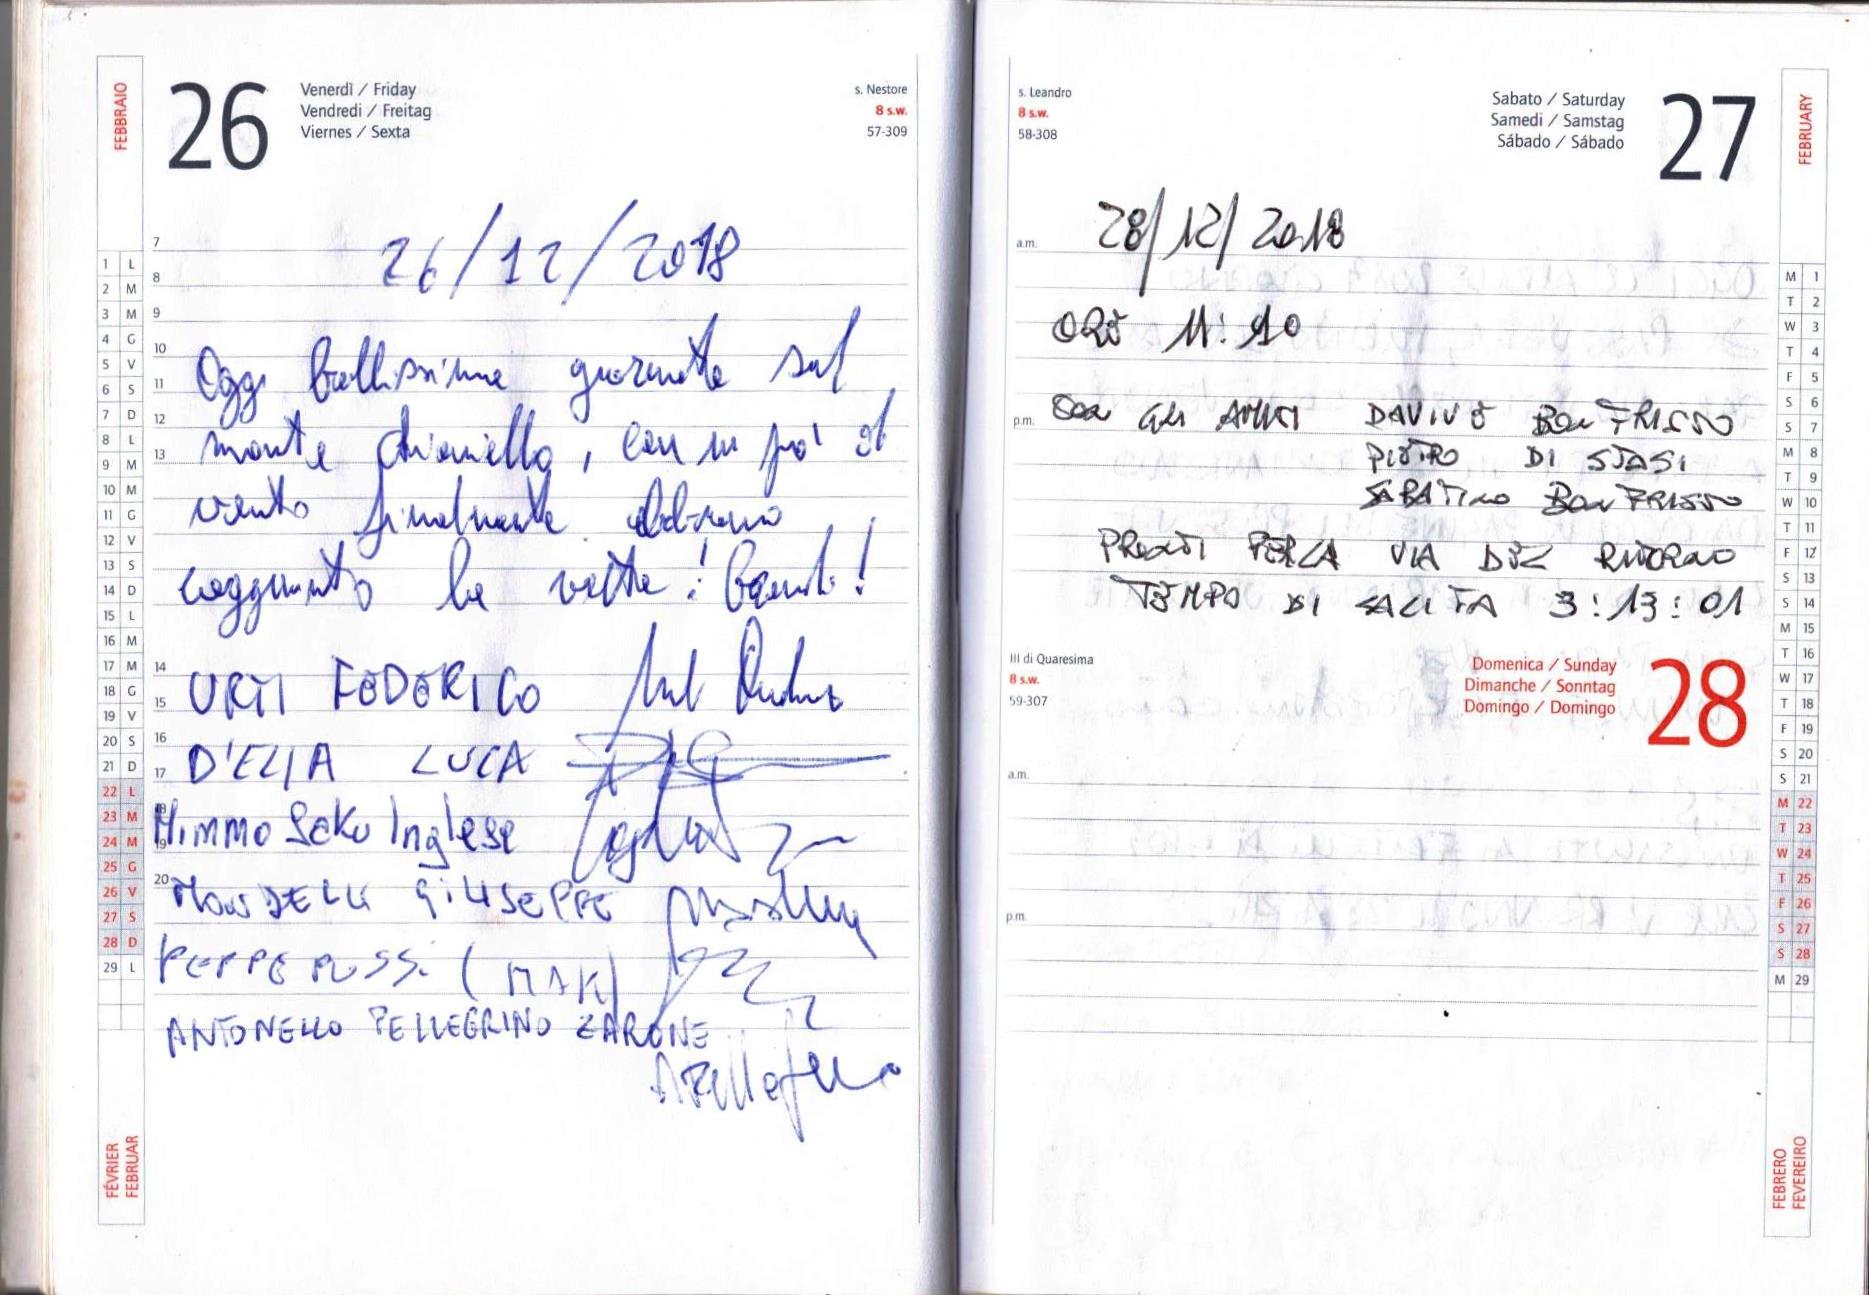 FEBBRAIO
26
Venerdì / Friday
Vendredi / Freitag
Viernes / Sexta
s. Nestore
8 s.w.
57-309
26/12/2018
Oggi bellissima giornata sul
monte, con un po' di
vento finalmente abbiamo
raggiunto la vetta!
URTI FEDERICO
D'ELIA LUCA
Mimmo Inglese
GIUSEPPE
PEPPE RUSSI (MAK)
ANTONELLO PELLEGRINO ZARONE
7
8
9
10
11
12
13
14
15
16
17
18
19
20
1 L
2 M
3 M
4 G
5 V
6 S
7 D
8 L
9 M
10 M
11 G
12 V
13 S
14 D
15 L
16 M
17 M
18 G
19 V
20 S
21 D
22 L
23 M
24 M
25 G
26 V
27 S
28 D
29 L
FÉVRIER
FEBRUAR
s. Leandro
8 s.w.
58-308
Sabato / Saturday
Samedi / Samstag
Sábado / Sábado
27
FEBRUARY
28/12/2018
a.m.
ORE 11:10
p.m.
CON GLI AMICI DAVIDE BONFRISSO
PIETRO DI STASI
SABATINO BONFRISSO
PRONTI PER LA VIA DEL RITORNO
TEMPO DI SALITA 3:13:01
III di Quaresima
8 s.w.
59-307
Domenica / Sunday
Dimanche / Sonntag
Domingo / Domingo
28
a.m.
p.m.
M 1
T 2
W 3
T 4
F 5
S 6
S 7
M 8
T 9
W 10
T 11
F 12
S 13
S 14
M 15
T 16
W 17
T 18
F 19
S 20
S 21
M 22
T 23
W 24
T 25
F 26
S 27
S 28
M 29
FEBRERO
FEVEREIRO